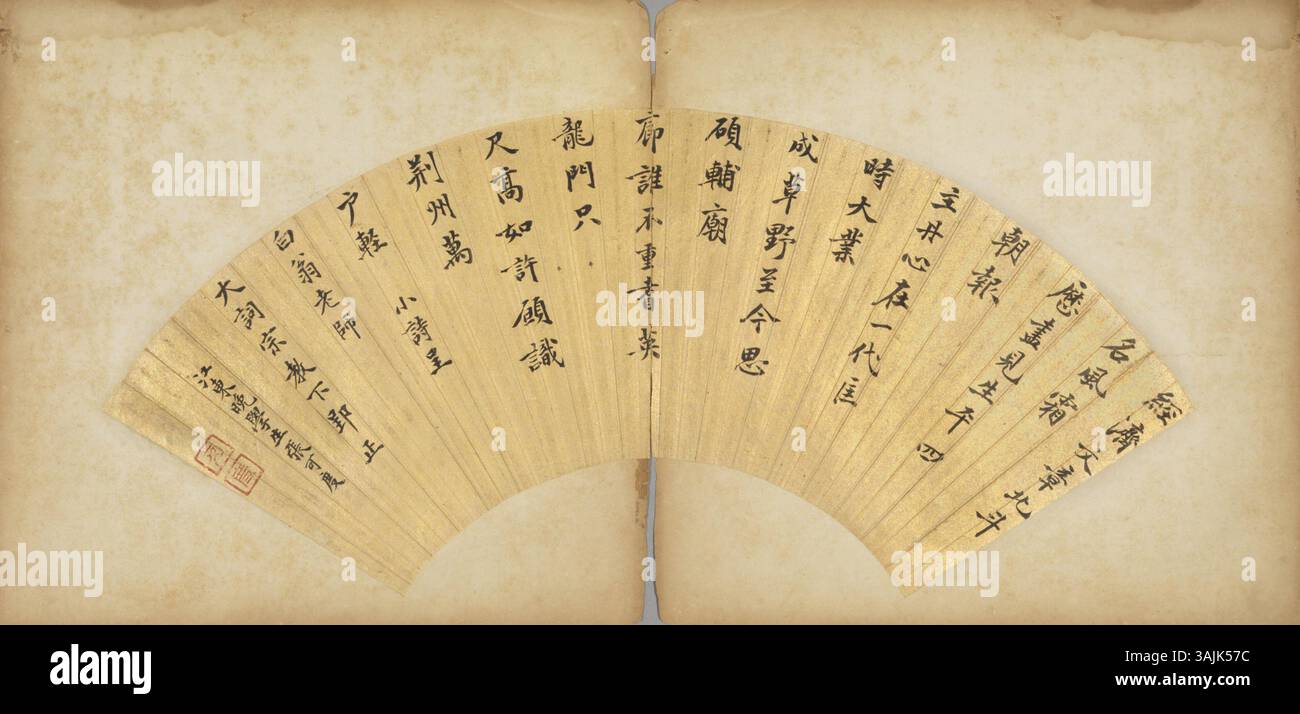 經濟文章北斗
名風霜
歷盡見生平四
朝報
主丹心在一代匡
時大業
成草野至今思
碩輔廟
廊誰不重耆英
龍門只
尺高如許願識
荆州萬
户輕
小詩呈
白翁老師
大詞宗教下郢正
江東晚學生張可度
alamy
Image ID: 3AJK57C
www.alamy.com